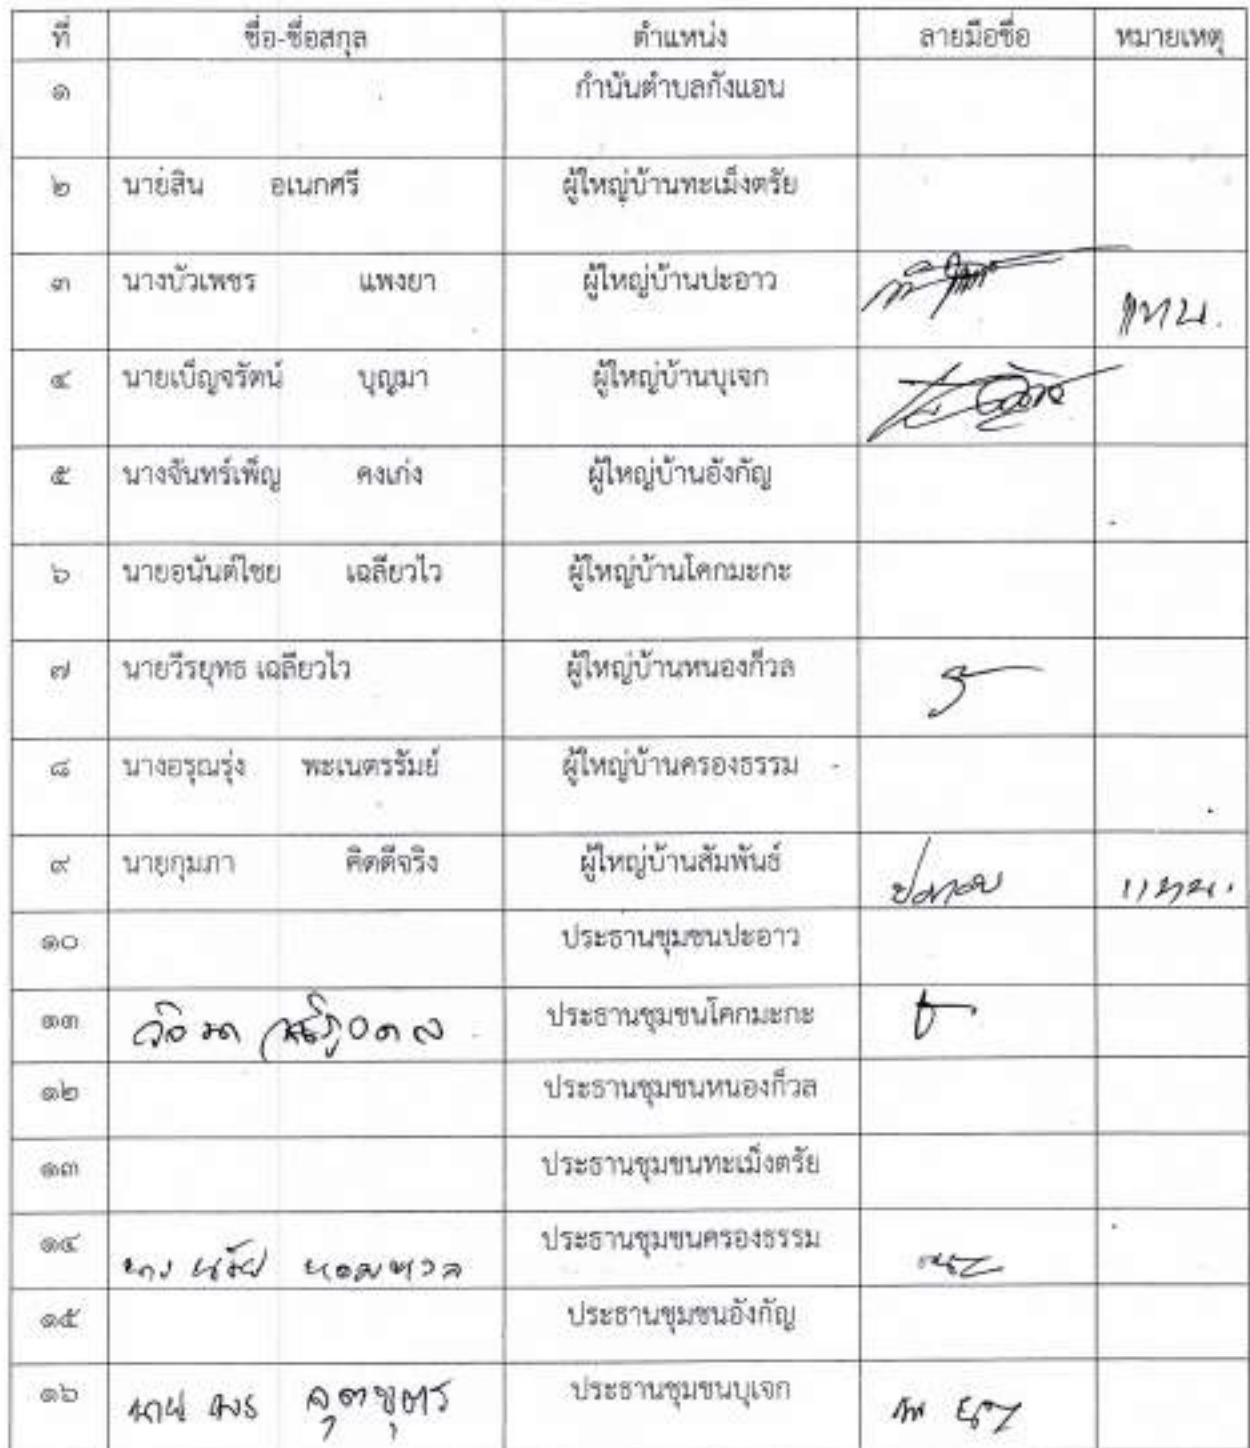 ที่ ชื่อ-ชื่อสกุล ตำแหน่ง ลายมือชื่อ หมายเหตุ
๑ กำนันตำบลกังแอน
๒ นายสิน อเนกศรี ผู้ใหญ่บ้านทะเม็งตรัย
๓ นางบัวเพชร แพงยา ผู้ใหญ่บ้านปะอาว แทน.
๔ นายเบ็ญจรัตน์ บุญมา ผู้ใหญ่บ้านบุเจก
๕ นางจันทร์เพ็ญ คงเก่ง ผู้ใหญ่บ้านอังกัญ
๖ นายอนันต์ไชย เฉลียวไว ผู้ใหญ่บ้านโคกมะกะ
๗ นายวีรยุทธ เฉลียวไว ผู้ใหญ่บ้านหนองกีวล
๘ นางอรุณรุ่ง พะเนตรรัมย์ ผู้ใหญ่บ้านครองธรรม
๙ นายกุมภา คิดดีจริง ผู้ใหญ่บ้านสัมพันธ์ แทน.
๑๐ ประธานชุมชนปะอาว
๑๑ ประธานชุมชนโคกมะกะ
๑๒ ประธานชุมชนหนองกีวล
๑๓ ประธานชุมชนทะเม็งตรัย
๑๔ นาง ประธานชุมชนครองธรรม
๑๕ ประธานชุมชนอังกัญ
๑๖ นาย ประธานชุมชนบุเจก